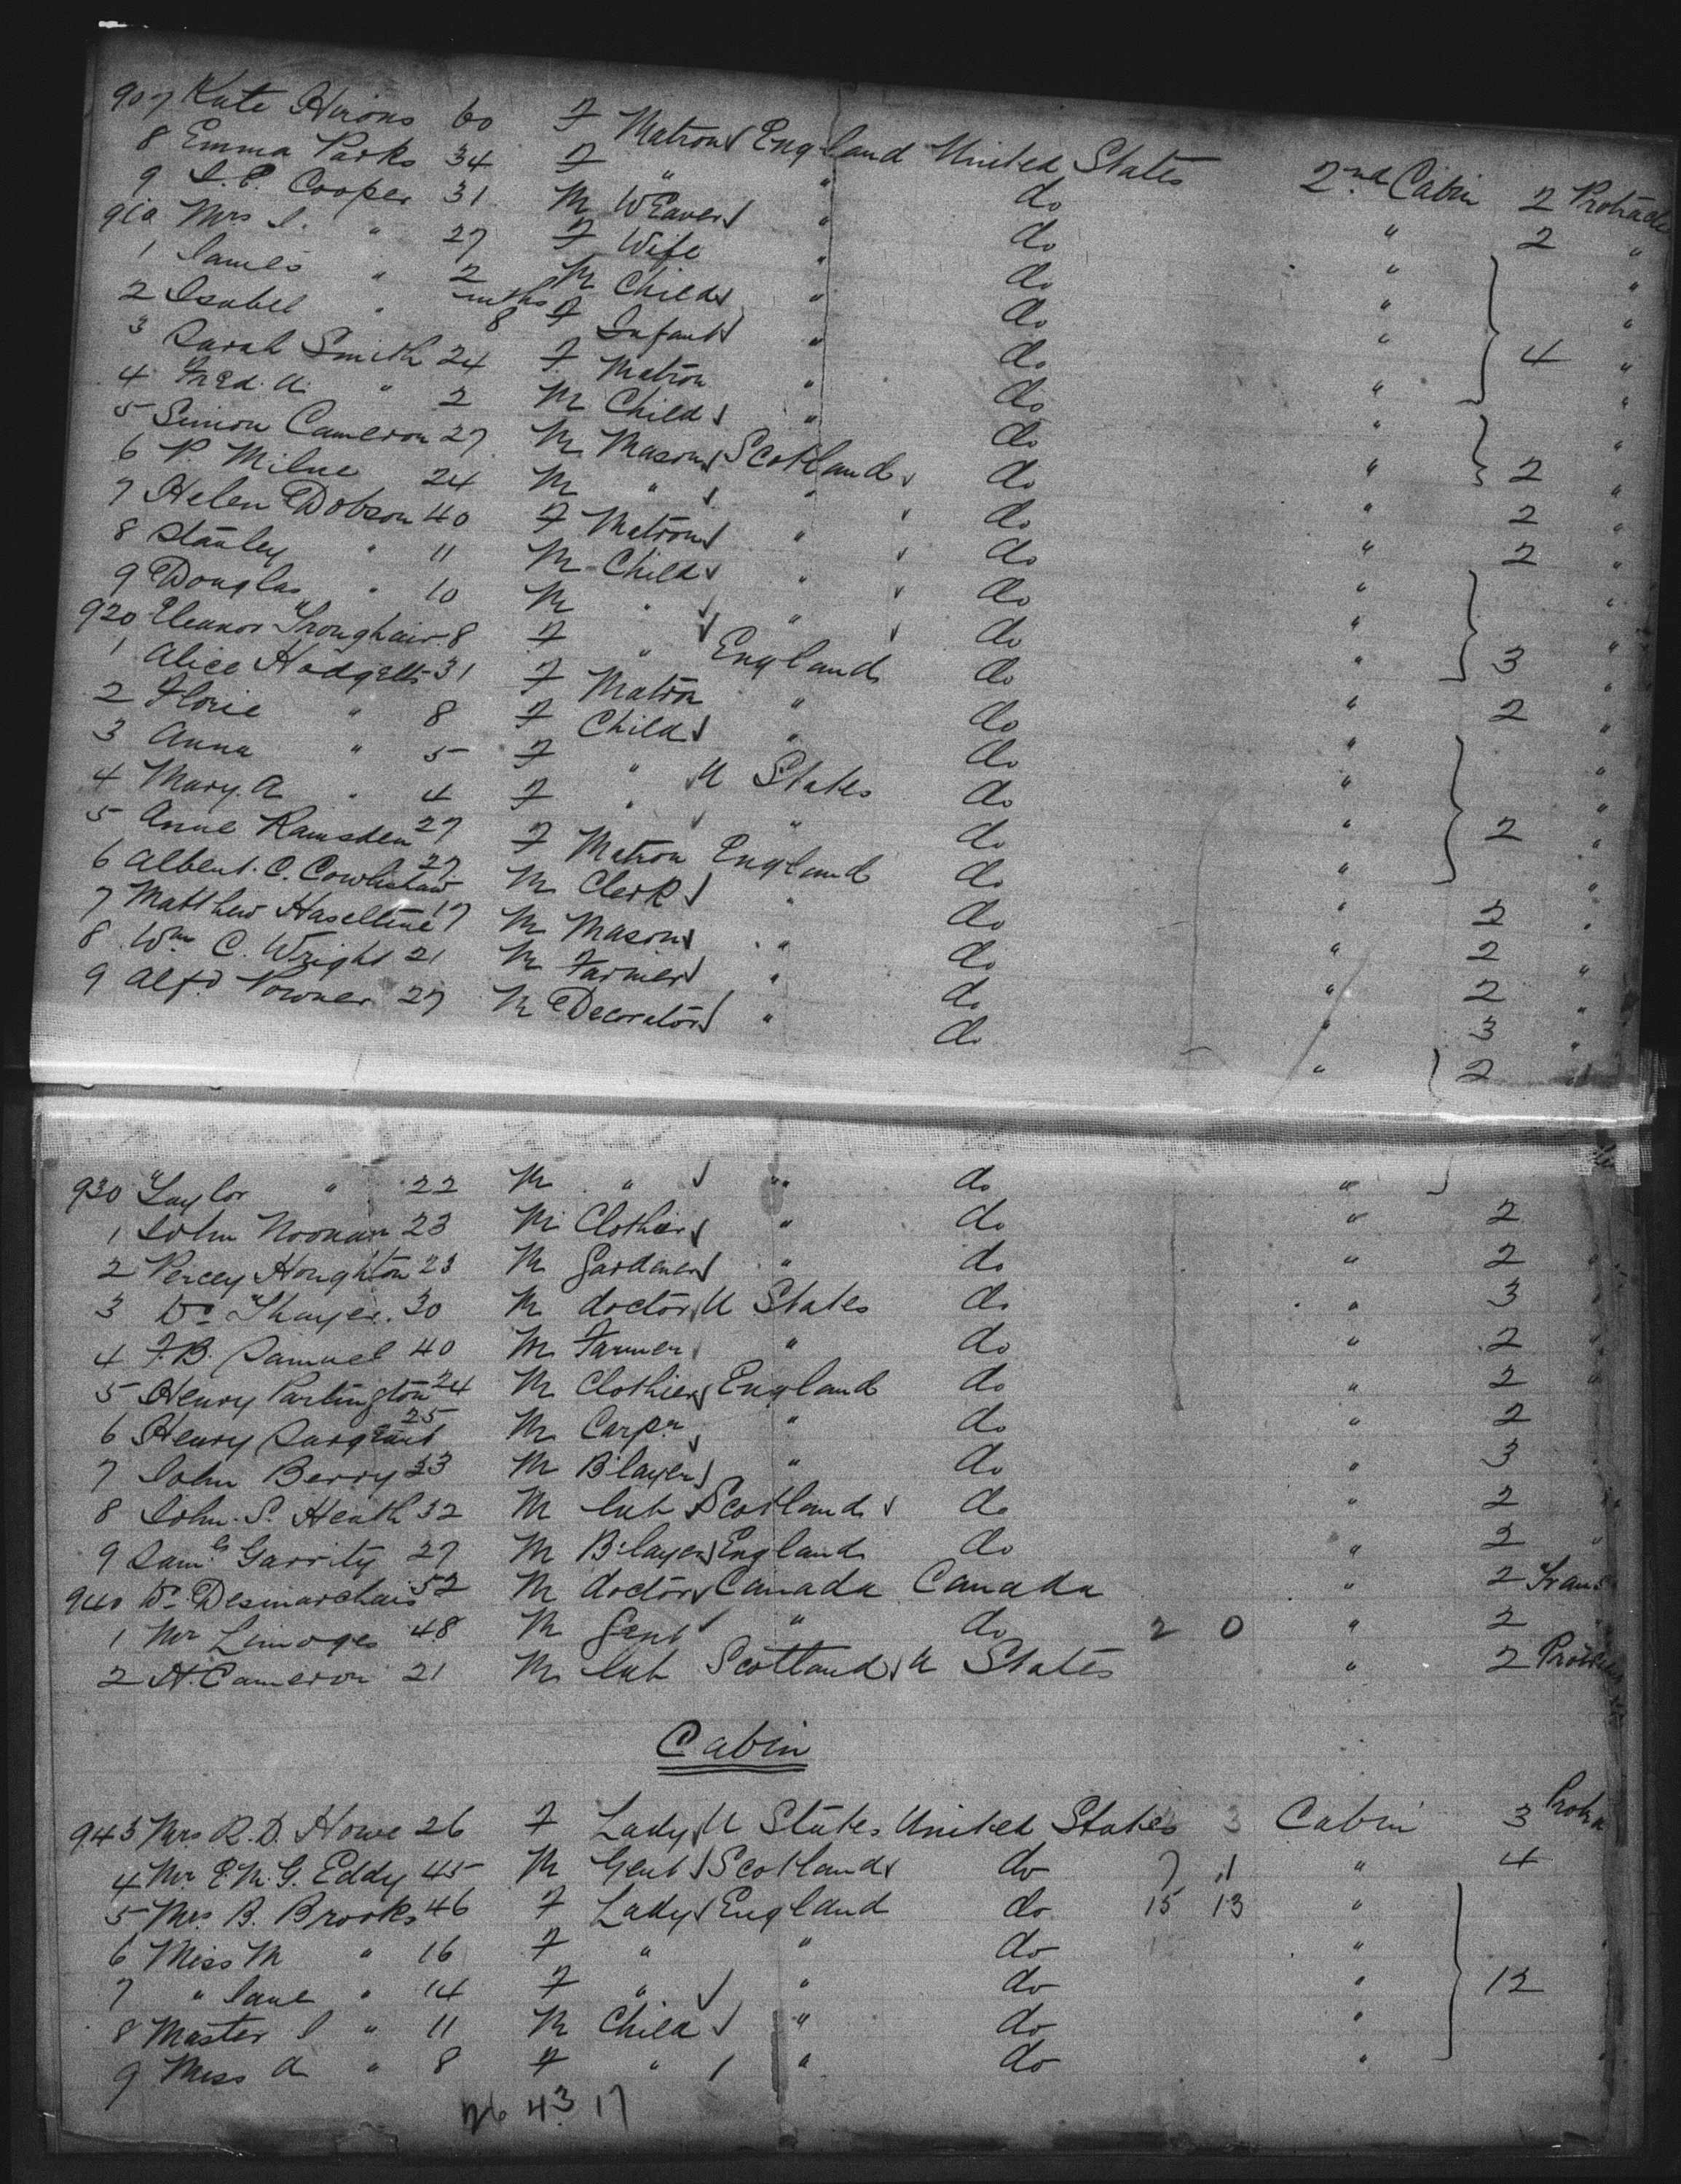 907 Kate Hirons 60 F Matron England United States 2nd Cabin 2
8 Emma Parks 34 F " " do " 2 "
9 J. P. Cooper 31 M Weaver " do " "
910 Mrs J. " 27 F Wife " do " "
1 James " 2 M Child " do " 4 "
2 Isabel " mths 8 F Infant " do " "
3 Sarah Smith 24 F Matron " do " "
4 Fred. A. " 2 M Child " do " 2 "
5 Simon Cameron 27 M Mason Scotland do " 2 "
6 P. Milne 24 M " " do " 2 "
7 Helen Dobson 40 F Matron " do " "
8 Stanley " 11 M Child " do " "
9 Douglas " 10 M " " do " 3 "
920 Eleanor Troughair 8 F " England do " 2 "
1 Alice Hodgetts 31 F Matron " do " "
2 Florie " 8 F Child " do " "
3 Anna " 5 F " U States do " 2 "
4 Mary. A " 4 F " " do " "
5 Anne Ramsden 27 F Matron England do " 2 "
6 Albert. C. Cowlishaw 27 M Clerk " do " 2 "
7 Matthew Haseltine 17 M Mason " do " 2 "
8 Wm C. Wright 21 M Farmer " do " 3 "
9 Alfd Powner 27 M Decorator " do " 2 "
930 Taylor " 22 M " " do "
1 John Noonan 23 M Clothier " do " 2
2 Percy Houghton 23 M Gardener " do " 2
3 Dr Thayer. 30 M doctor U States do " 3
4 F. B. Samuel 40 M Farmer " do " 2
5 Henry Partington 24 M Clothier England do " 2
6 Henry Sargeant 25 M Carpr " do " 2
7 John Berry 23 M B'layer " do " 3
8 John. S. Heath 32 M lab Scotland do " 2
9 Saml Garrity 27 M B'layer England do " 2
940 Dr Desmarchais 52 M doctor Canada Canada " 2 Trans
1 Mr Limoges 48 M Gent " do 2 0 " 2
2 H. Cameron 21 M lab Scotland U States " 2
Cabin
943 Mrs R. D. Howe 26 F Lady U States United States 3 Cabin 3
4 Mr E. M. G. Eddy 45 M Gent Scotland do 7 1 " 4
5 Mrs B. Brooks 46 F Lady England do 15 13 "
6 Miss M " 16 F " " do "
7 " Jane " 14 F " " do " 12
8 Master J " 11 M Child " do "
9 Miss A " 8 F " " do "
26 43 17